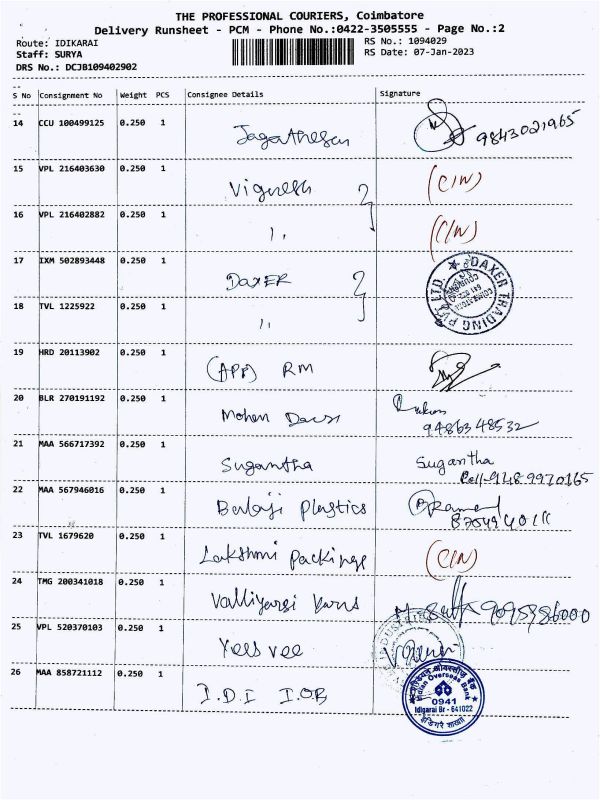 THE PROFESSIONAL COURIERS, Coimbatore
Delivery Runsheet - PCM - Phone No.:0422-3505555 - Page No.:2
Route: IDIKARAI
RS No.: 1094029
Staff: SURYA
RS Date: 07-Jan-2023
DRS No.: DCJB109402902
S No Consignment No Weight PCS Consignee Details Signature
14 CCU 100499125 0.250 1 Jagathesan 9843021965
15 VPL 216403630 0.250 1 Vignesh (CIN)
16 VPL 216402882 0.250 1 ,, (CIN)
17 IXM 502893448 0.250 1 DAXER
DAXER TRADING PVT LTD.
18 TVL 1225922 0.250 1 ,,
19 HRD 20113902 0.250 1 (APP) RM
20 BLR 270191192 0.250 1 Mohan
21 MAA 566717392 0.250 1 Sugantha Sugantha
22 MAA 567946016 0.250 1 Balaji Plastics
23 TVL 1679620 0.250 1 Lakshmi Packings (CIN)
24 TMG 200341018 0.250 1 9095986000
25 VPL 520370103 0.250 1 Yees vee
26 MAA 858721112 0.250 1 I.D.I I.OB
Indian Overseas Bank
0941
Idigarai Br - 641022